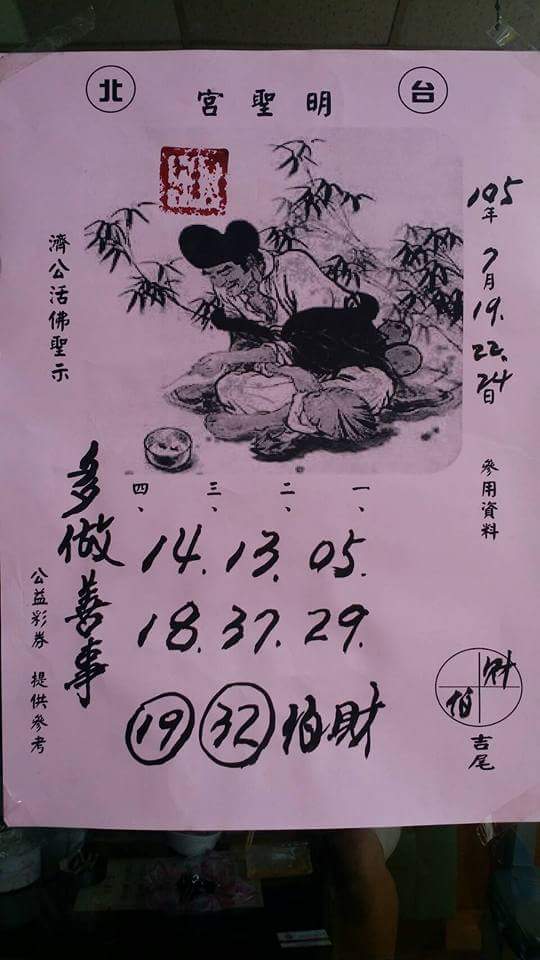 台北
明聖宮
105年7月19.22.24日
參用資料
濟公活佛聖示
一、二、三、四、
05. 13. 14.
29. 37. 18.
財伯 32 19
多做善事
公益彩券 提供參考
財
伯
吉尾